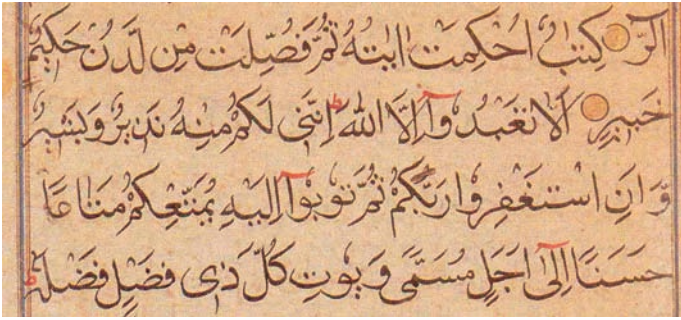 الٓرٰ كِتٰبٌ اُحْكِمَتْ اٰيٰتُهٗ ثُمَّ فُصِّلَتْ مِنْ لَّدُنْ حَكِيْمٍ
خَبِيْرٍ اَلَّا تَعْبُدُوْٓا اِلَّا اللّٰهَ ط اِنَّنِىْ لَكُمْ مِنْهُ نَذِيْرٌ وَّبَشِيْرٌ
وَّاَنِ اسْتَغْفِرُوْا رَبَّكُمْ ثُمَّ تُوْبُوْٓا اِلَيْهِ يُمَتِّعْكُمْ مَتَاعًا
حَسَنًا اِلٰٓى اَجَلٍ مُسَمًّى وَّيُؤْتِ كُلَّ ذِىْ فَضْلٍ فَضْلَهٗ ط